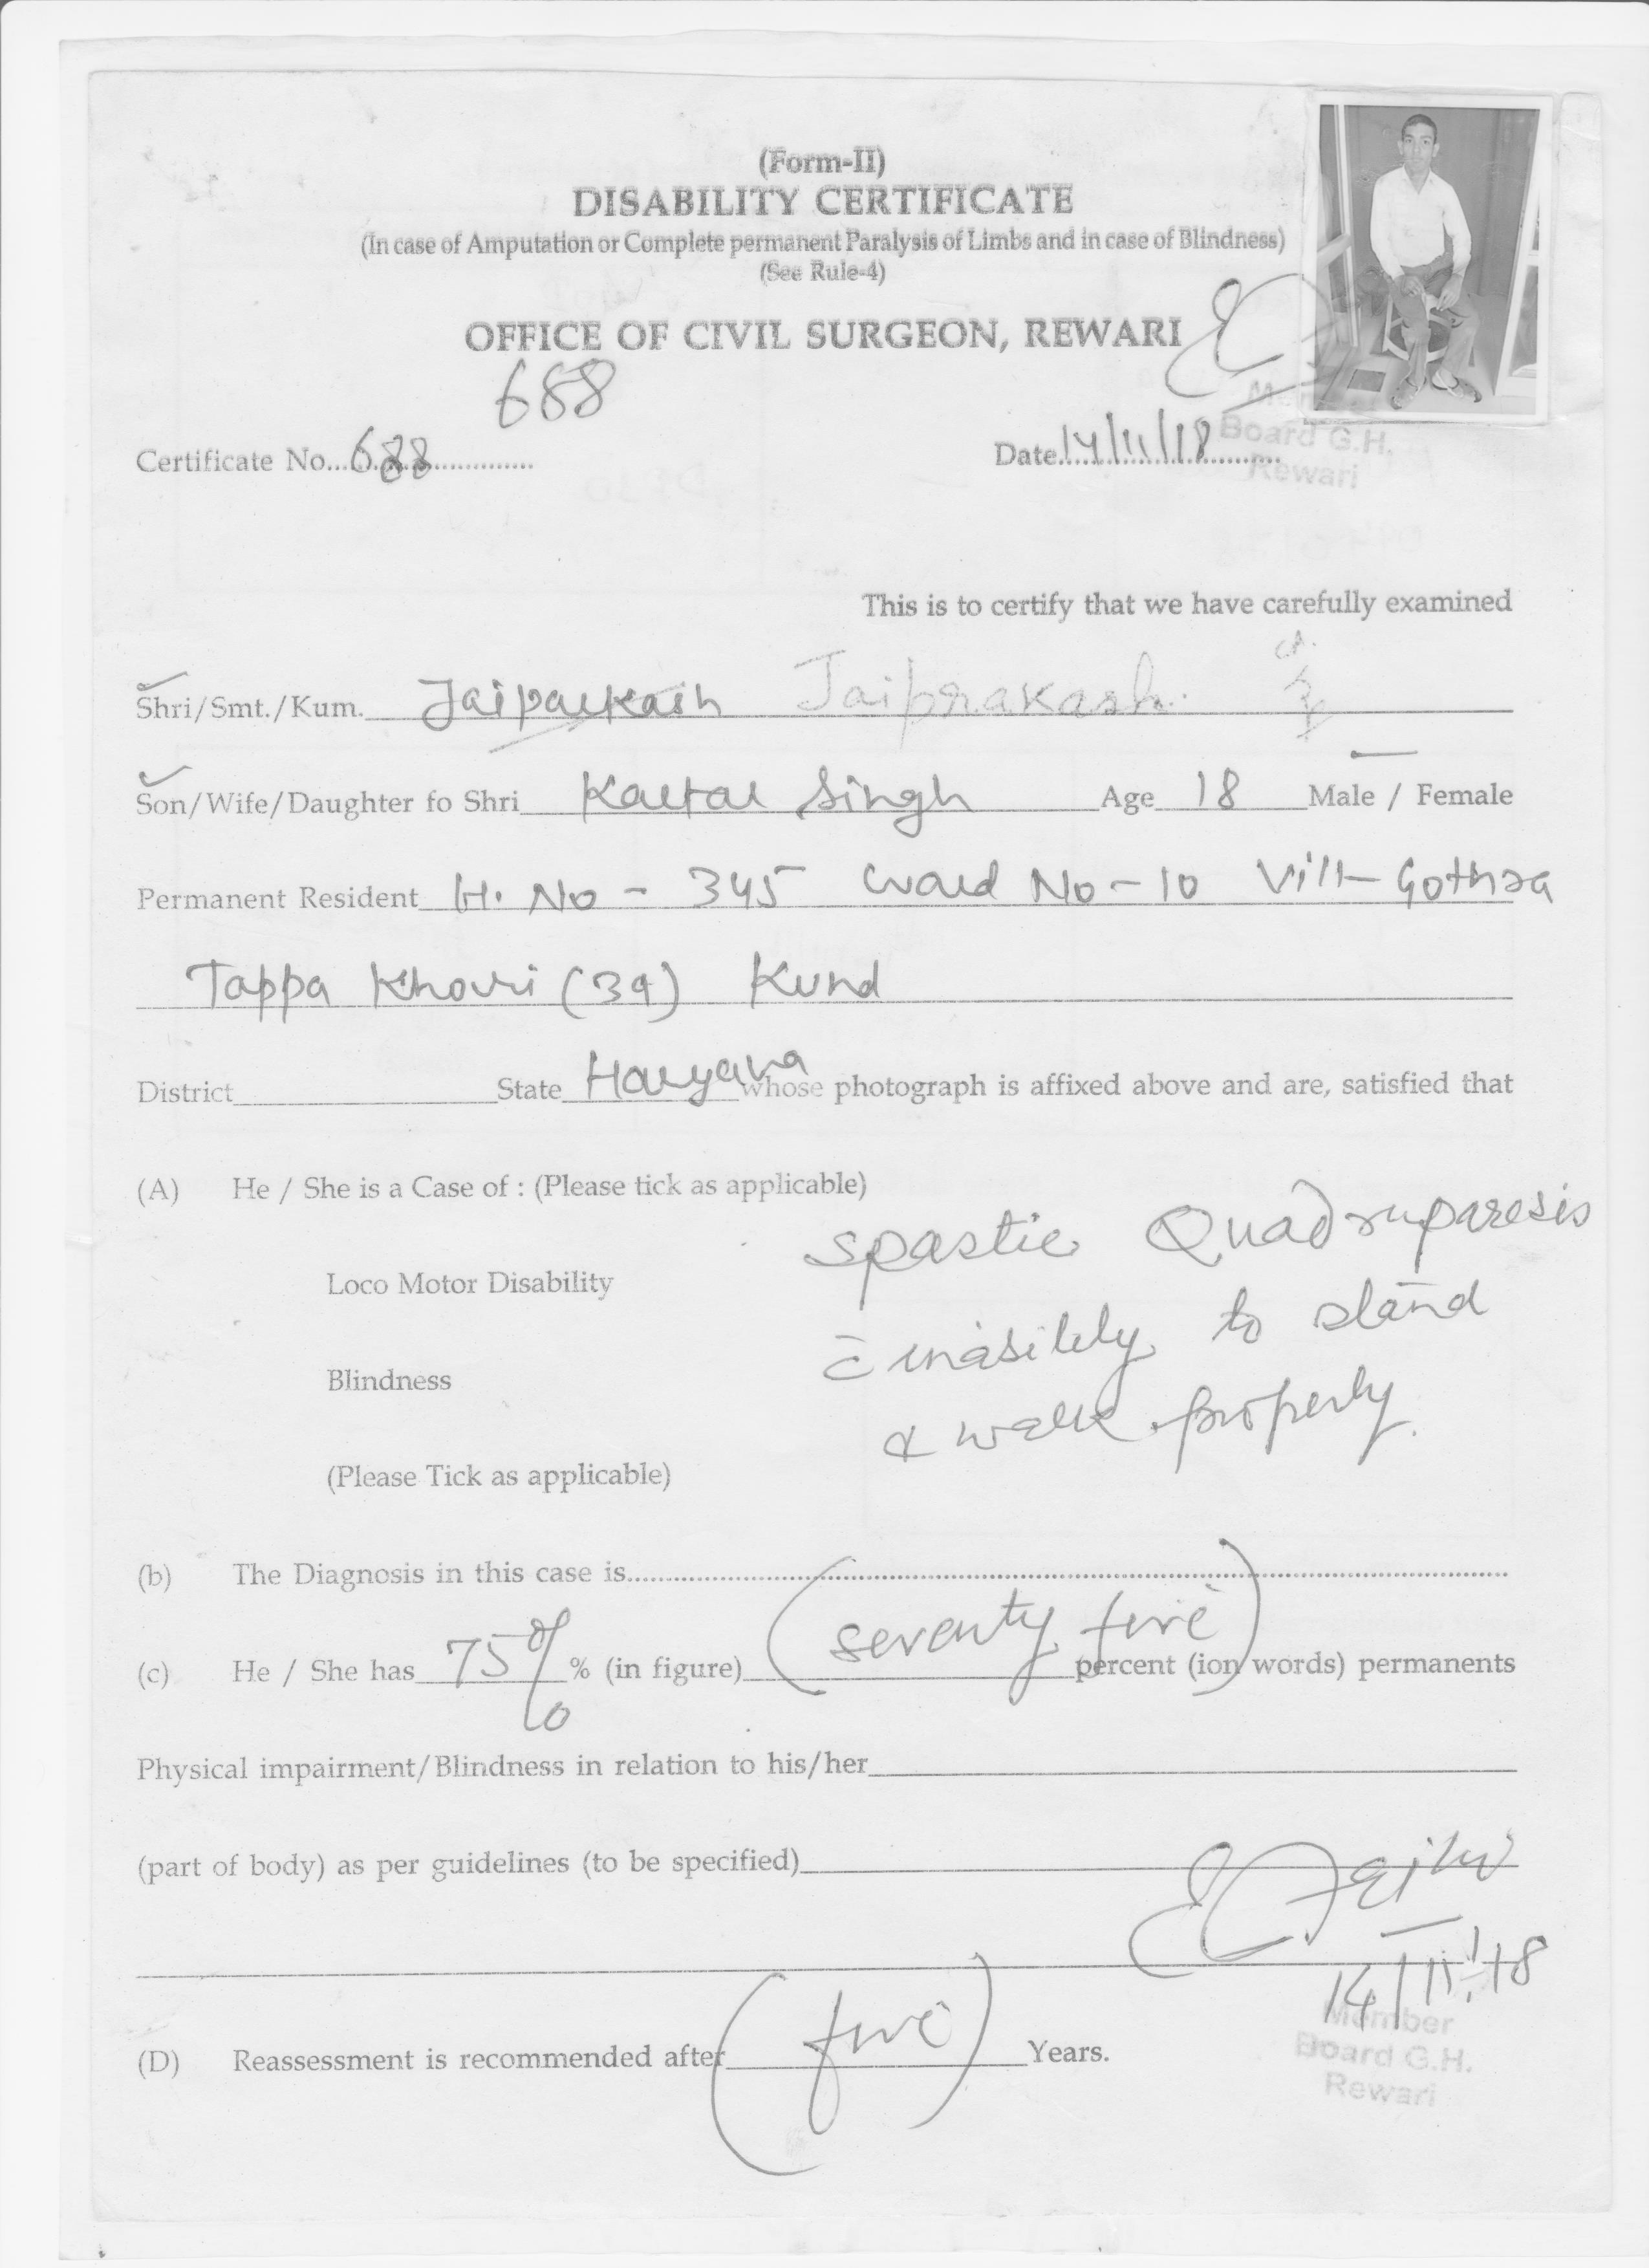 (Form-II)
DISABILITY CERTIFICATE
(In case of Amputation or Complete permanent Paralysis of Limbs and in case of Blindness)
(See Rule-4)
OFFICE OF CIVIL SURGEON, REWARI
688
Certificate No...688............. Date14/11/18
Member
Board G.H.
Rewari
This is to certify that we have carefully examined
Shri/Smt./Kum. Jaiparkash Jaiprakash.
Son/Wife/Daughter fo Shri Kartar Singh Age 18 Male / Female
Permanent Resident H. No - 345 Ward No - 10 Vill- Gothra
Tappa Khori (39) Kund
District State Haryana whose photograph is affixed above and are, satisfied that
(A) He / She is a Case of : (Please tick as applicable)
Spastic Quadruparesis
Loco Motor Disability
c̄ inability to stand
Blindness
& walk properly.
(Please Tick as applicable)
(b) The Diagnosis in this case is
(c) He / She has 75% % (in figure) (seventy five) percent (ion words) permanents
Physical impairment/Blindness in relation to his/her
(part of body) as per guidelines (to be specified)
14/11/18
(D) Reassessment is recommended after (five) Years.
Member
Board G.H.
Rewari